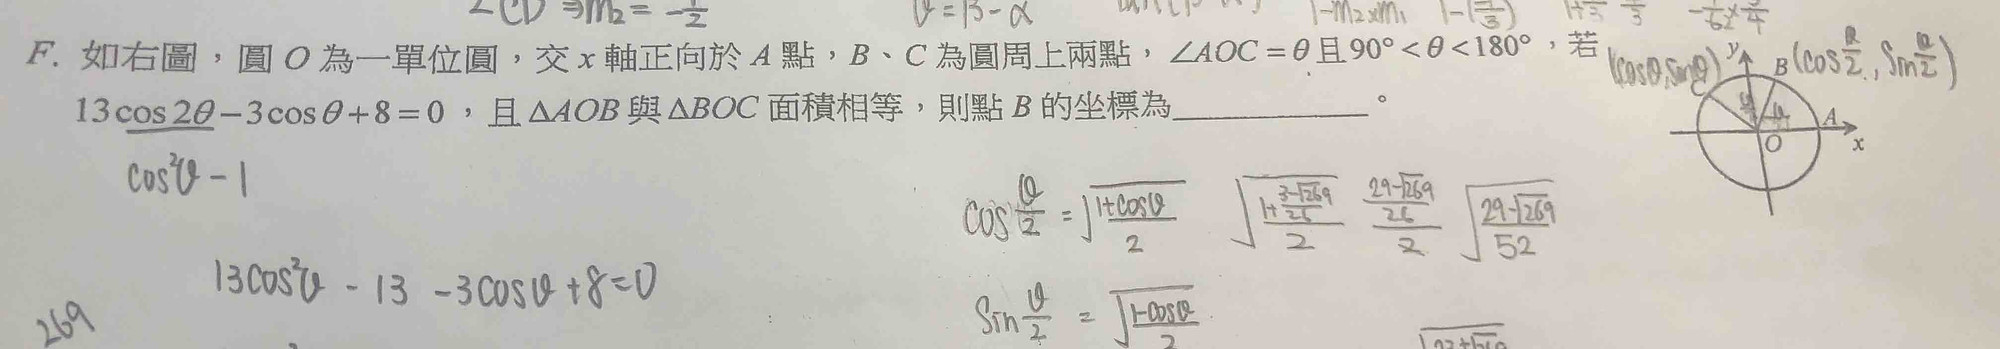 ∠CD ⇒ m₂ = -1/2
θ = β - α
1-m₂×m₁
F. 如右圖，圓 O 為一單位圓，交 x 軸正向於 A 點，B、C 為圓周上兩點，∠AOC = θ 且 90° < θ < 180°，若
13cos2θ − 3cosθ + 8 = 0，且 ΔAOB 與 ΔBOC 面積相等，則點 B 的坐標為＿＿＿＿＿＿。
(cosθ, sinθ) y B (cos θ/2, sin θ/2)
C
A
O x
cos²θ - 1
cos θ/2 = √((1+cosθ)/2) √((1+(3-√269)/26)/2) ((29-√269)/26)/2 √((29-√269)/52)
13cos²θ - 13 - 3cosθ + 8 = 0
sin θ/2 = √((1-cosθ)/2)
269